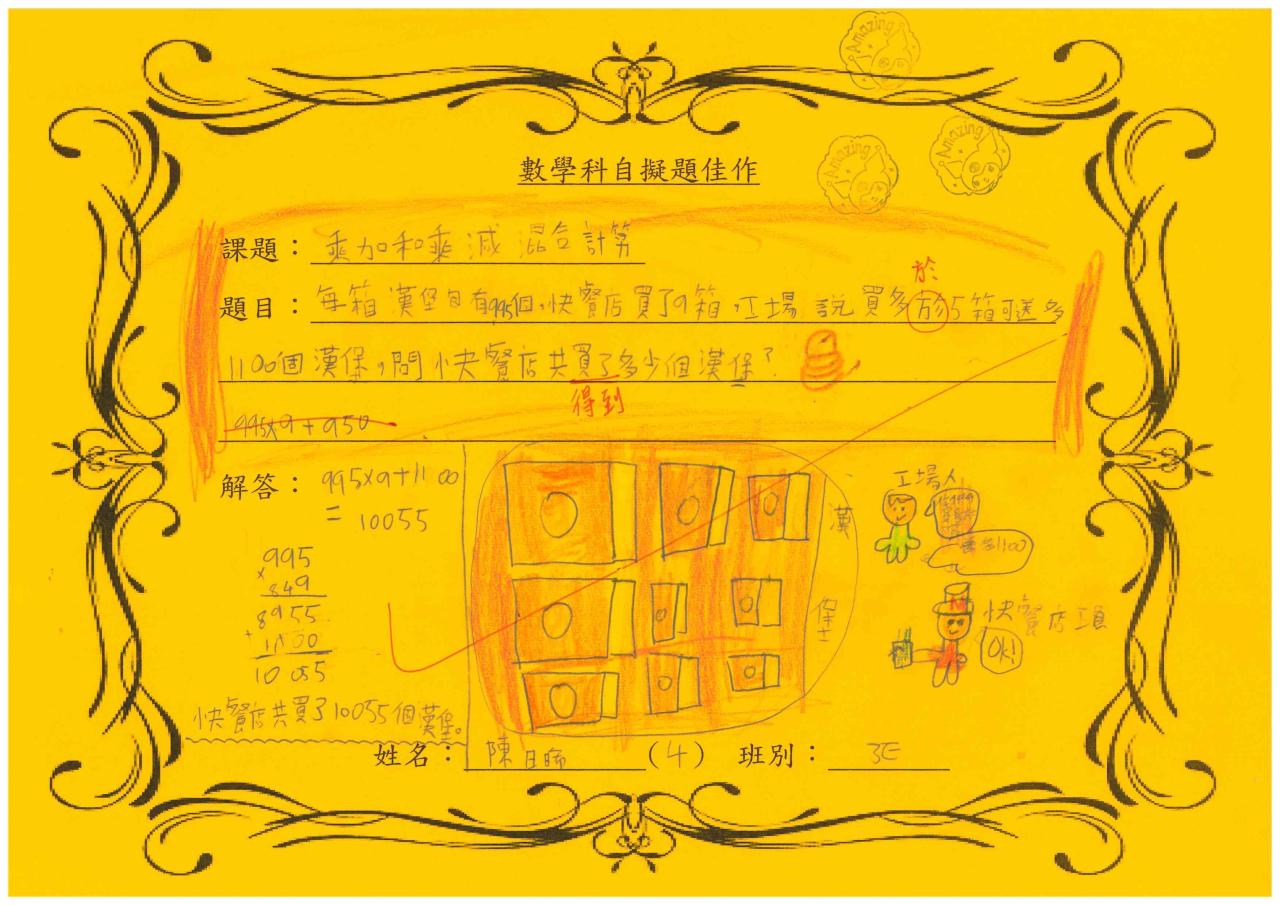 Amazing
Amazing
Amazing
數學科自擬題佳作
課題：乘加和乘減 混合計算
於
題目：每箱漢堡包有995個,快餐店買了9箱,工場說買多於5箱可送多
1100個漢堡,問快餐店共買了多少個漢堡?
得到
995x9+950
解答：995x9+1100
= 10055
995
x 849
8955
+1100
10055
快餐店共買了10055個漢堡。
漢
保
工場人
1100
快餐店員
Ok!
姓名：陳 (4) 班別：3E